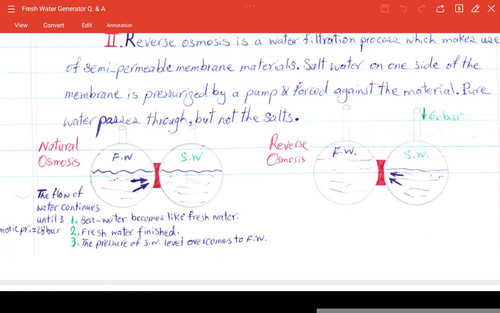 Fresh Water Generator Q. & A
View Convert Edit Annotation
II. Reverse osmosis is a water filtration process which makes use
of semi-permeable membrane materials. Salt water on one side of the
membrane is pressurized by a pump & forced against the material. Pure
water passes through, but not the salts.
60bar
Natural
Osmosis
F.W
S.W
Reverse
Osmosis
F.W.
S.W.
The flow of
water continues
until 3 1. Sea-water becomes like fresh water.
motic pri=28bar 2. Fresh water finished.
3. The pressure of S.W. level overcomes to F.W.